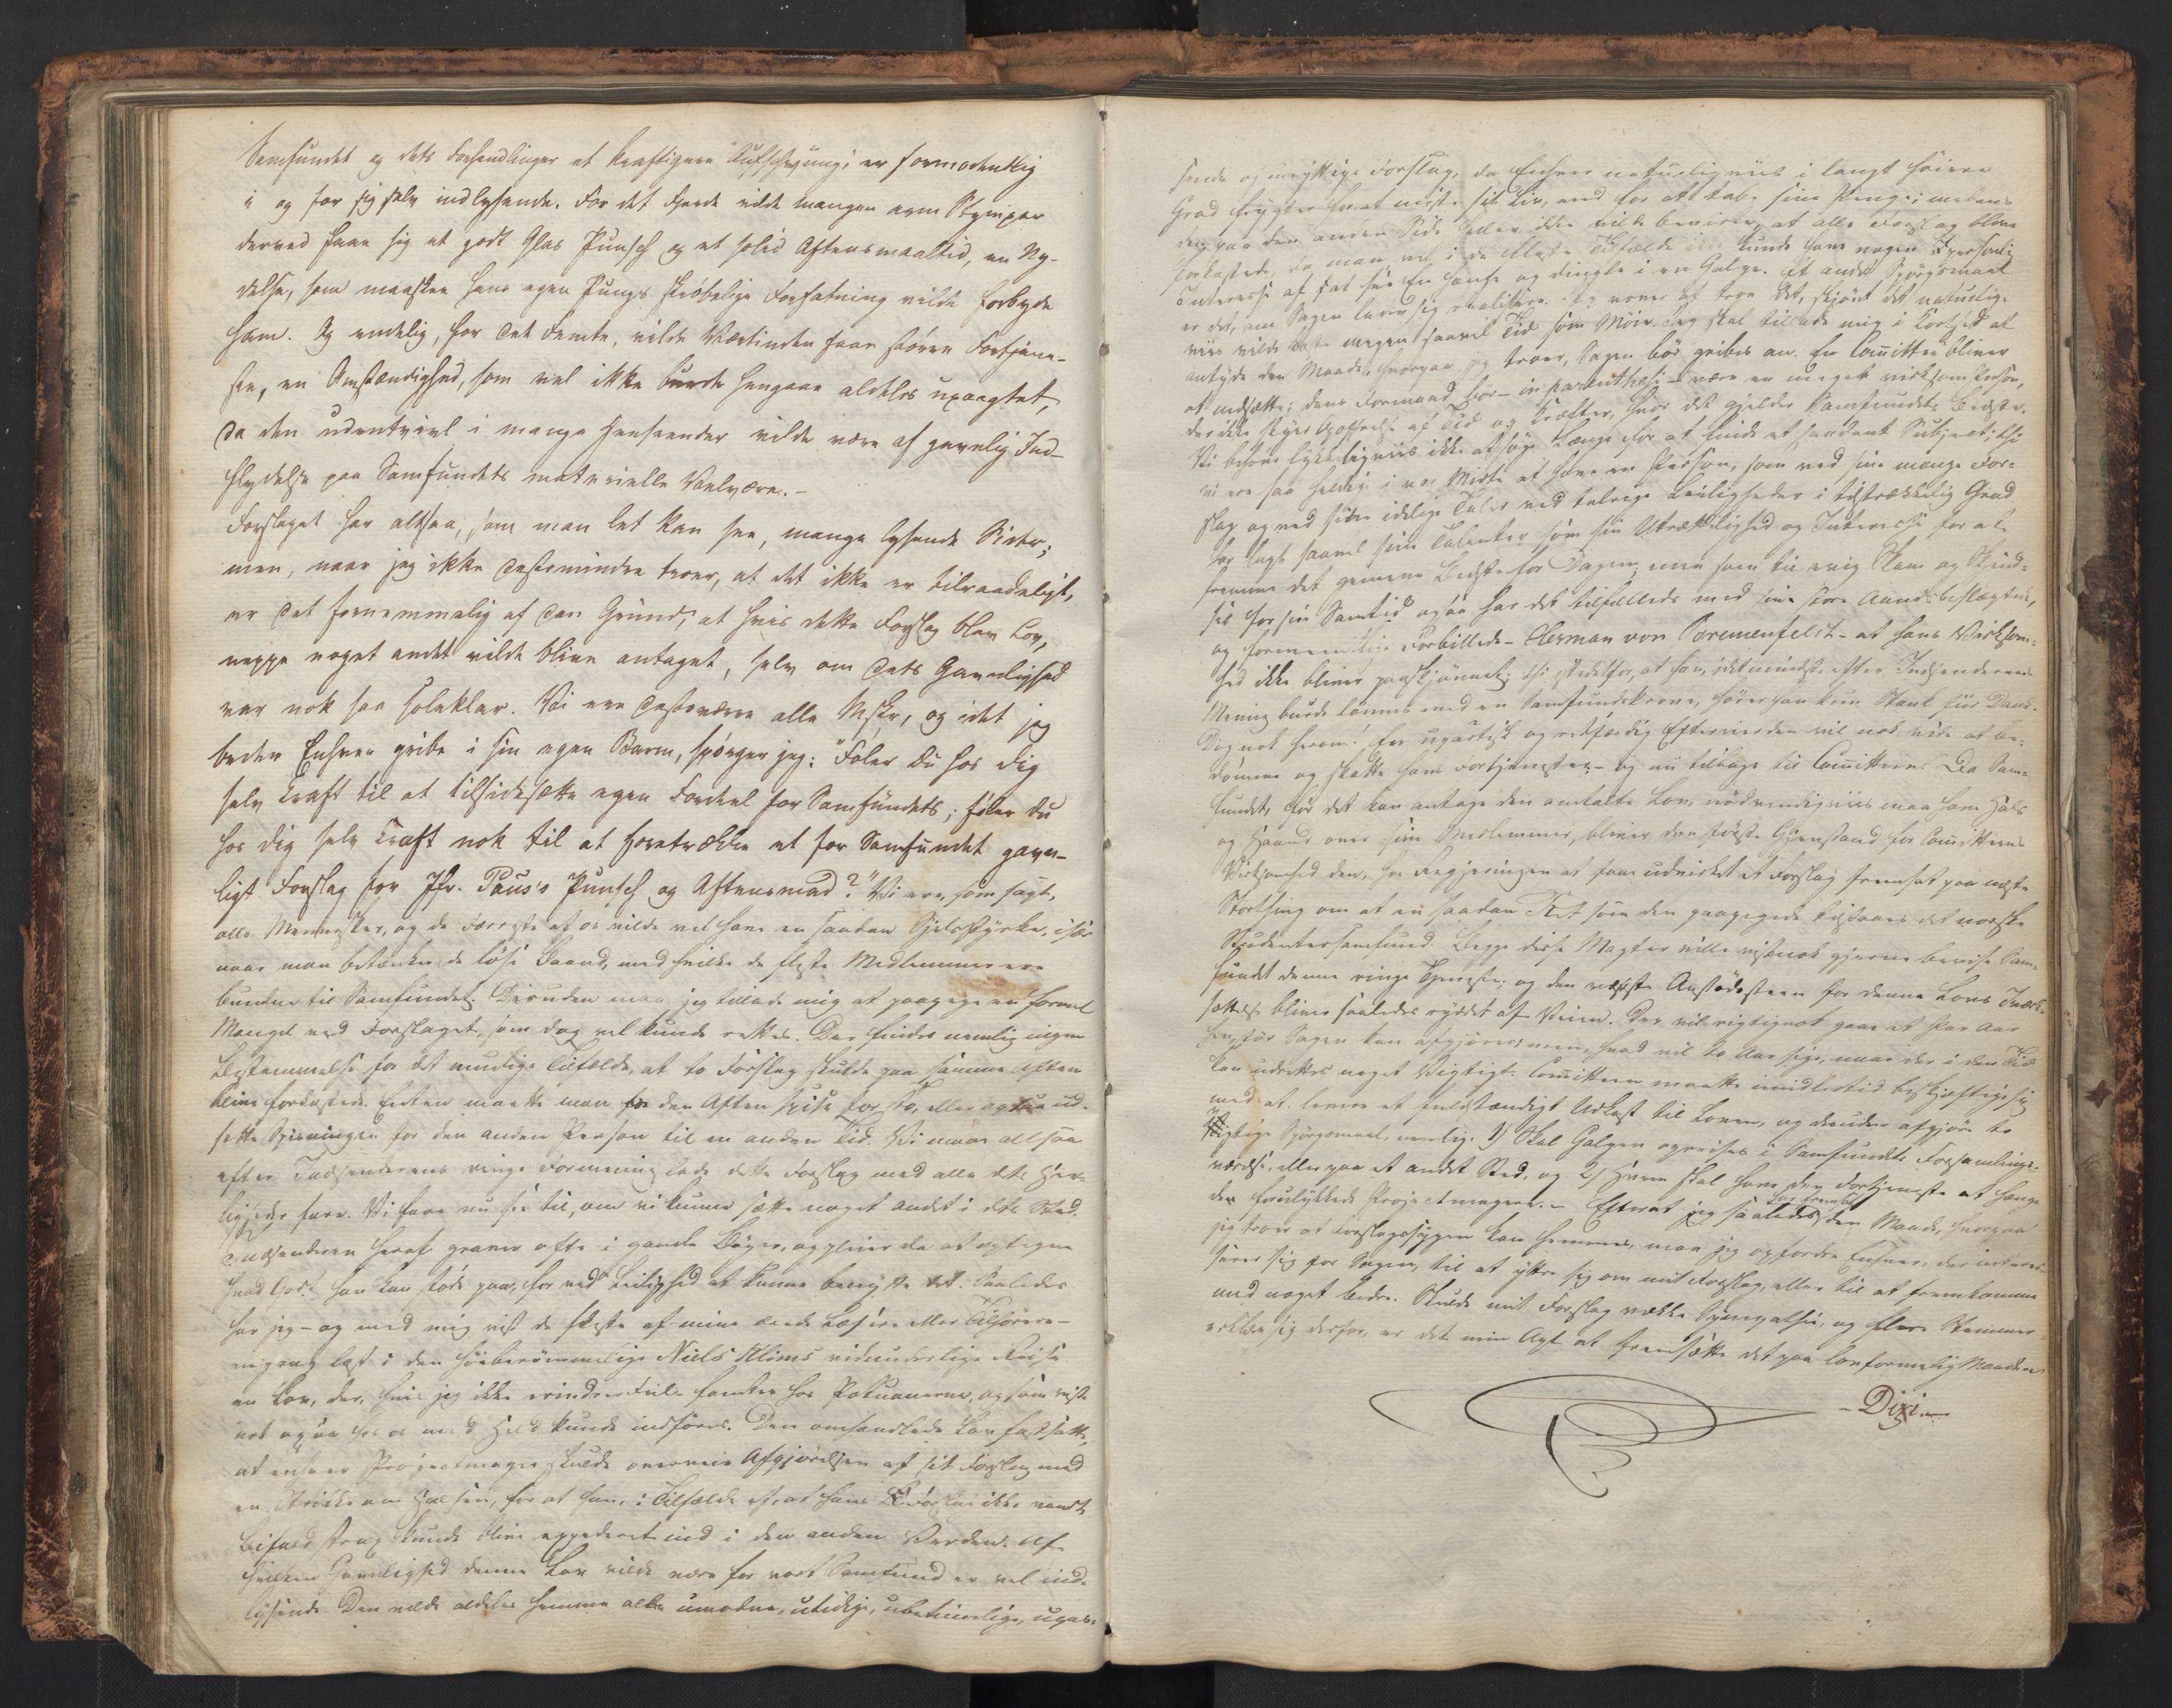 Samfundet og dets Forhandlinger et kraftigere "Aufschwung", er formodentlig
i og for sig selv indlysende. For det Fjerde vilde mangen arm Stymper
derved faae sig et godt Glas Punsch og et solid Aftensmaaltid, en Ny-
delse, som maaskee hans egen Pungs skrøbelige Forfatning vilde forbyde
ham. Og endelig, for det Femte, vilde Værtinden faae større Fortjene-
ste, en Omstændighed, som vel ikke burde hengaae aldeles upaaagtet,
da den udentvivl i mange Henseender vilde være af gavnlig Ind-
flydelse paa Samfundets materielle Velvære.-
Forslaget har altsaa, som man let kan see, mange lysende Sider;
men, naar jeg ikke destomindre troer, at det ikke er tilraadeligt,
er det fornemmelig af den Grund, at hvis dette Forslag blev Lov,
neppe noget andet vilde blive antaget, selv om dets Gavnlighed
var nok saa soleklar. Vi ere desværre alle Msker, og idet jeg
beder Enhver gribe i sin egen Barm, spørger jeg: "Føler du hos dig
selv Kraft til at tilsidesætte egen Fordeel for Samfundets; føler du
hos dig selv Kraft nok til at foretrække et for Samfundet gavn-
ligt Forslag for Jfr. Paus's Punsch og Aftensmad?" Vi ere, som sagt,
alle Mennesker, og de Færreste af os vilde vel have en saadan Sjelsstyrke, især
naar man betænker de løse Baand, med hvilke de fleste Medlemmer ere
bundne til Samfundet. Desuden maa jeg tillade mig at paapege en formel
Mangel ved Forslaget, som dog vel kunde rettes. Der findes nemlig ingen
Bestemmelse for det mulige Tilfælde, at to Forslag skulde paa samme Aften
blive forkastede. Enten maatte man den Aften spise for To, eller ogsaa ud-
sætte Spisningen for den anden Person til en anden Tid. Vi maae altsaa
efter Indsenderens ringe Formening lade dette Forslag med alle dets Her-
ligheder fare. Vi faae nu see til, om vi kunne sætte noget andet i dets Sted.
Indsenderen heraf graver ofte i gamle Bøger, og pleier da at optegne
hvad Godt han kan støde paa, for ved Leilighed at kunne benytte det. Saaledes
har jeg - og med mig vist de fleste af mine ærede Læsere eller Tilhørere -
engang læst i den høiberømmelige Niels Klims vidunderlige Reise
en Lov, der, hvis jeg ikke erindrer feil, fandtes hos Potuanerne, og som vist-
nok ogsaa hos os med Held kunde indføres. Den omhandlede Lov fastsatte,
at enhver Projectmager skulde overvære Afgjørelsen af sit Forslag med
en Strikke om Halsen, for at han, i Tilfælde af, at hans Forslag ikke vandt
Bifald strax kunde blive expederet ind i den anden Verden. Af
hvilken Gavnlighed denne Lov vilde være for vort Samfund er vel ind-
lysende. Den vilde aldeles hemme alle umodne, utidige, ubetimelige, upas-
sende og unyttige Forslag, da Enhver naturligviis i langt høiere
Grad frygter for at miste sit Liv, end for at tabe sine Penge; medens
den paa den anden Side heller ikke vilde bevirke, at alle Forslag bleve
forkastede, da man vel i de fleste Tilfælde ikke kunde have nogen personlig
Interesse af at see En hænge og dingle i en Galge. Et andet Spørgsmaal
er det, om Sagen lader sig realisere. Jeg vover at troe det, skjønt det naturlig-
viis vilde koste megen saavel Tid som Møie. Jeg skal tillade mig i Korthed at
antyde den Maade, hvorpaa jeg troer, Sagen bør gribes an. En Committee bliver
at nedsætte; dens Formand bør - in parenthesi - være en meget virksom Person,
der ikke skyer Opoffrelse af Tid og Kræfter, hvor det gjelder Samfundets Bedste.
Vi behøve lykkeligviis ikke at søge længe for at finde et saadant Subject; thi
vi ere saa heldige i vor Midte at have en Person, som ved sine mange For-
slag og ved sine idelige Taler ved talrige Leiligheder i tilstrækkelig Grad
har lagt saavel sine Talenter, som sin Utrættelighed og Interesse for at
fremme det gemene Bedste for Dagen, men som til evig Skam og Skjænd-
sel for sin Samtid ogsaa har det tilfælleds med sin store Aandsbeslægtede,
og Forbillede - Herman von Bremenfelst - at hans Virksom-
hed ikke bliver paaskjønnet; thi istedetfor, at han, idetmindste efter Indsenderens
Mening burde lønnes med en Samfundskrone, hører han kun Stank für Dank.
Dog nok herom! En upartisk og retfærdig Efterverden vil nok vide at be-
dømme og skatte hans Fortjenester - og nu tilbage til Committeen. Da Sam-
fundet, før det kan antage den omtalte Lov, nødvendigviis maa have Hals
og Haand over sine Medlemmer, bliver den første Gjenstand for Committeens
Virksomhed den, hos Regjeringen at faae udvirket et Forslag fremsat paa næste
Storthing om at en saadan Ret som den paapegede tilstaaes det norske
Studentersamfund. Begge disse Magter ville vistnok gjerne bevise Sam-
fundet denne ringe Tjeneste; og den værste Anstødssteen for denne Lovs Iværk-
sættelse bliver saaledes ryddet af Veien. Der vil rigtignok gaae et Par Aar
hen, før Sagen kan afgjøres; men, hvad vil to Aar sige, naar der i den Tid
kan udrettes noget Vigtigt. Committeen maatte imidlertid beskjæftige sig
med at levere et fuldstændigt Udkast til Loven, og desuden afgjøre to
vigtige Spørgsmaal, nemlig: 1) Skal Galgen opreises i Samfundets Forsamlings-
værelse, eller paa et andet Sted, og 2) Hvem skal have den Fortjeneste at hænge
den forulykkede Projectmager. - Efterat jeg saaledes har fremsat den Maade, hvorpaa
jeg troer at Forslagssygen kan hemmes, maa jeg opfordre Enhver, der interes-
serer sig for Sagen, til at yttre sig om mit Forslag, eller til at fremkomme
med noget bedre. Skulde mit Forslag vække Sympathie, og flere Stemmer
erklære sig derfor, er det min Agt at fremsætte det paa lovformelig Maade.
- Dixi. -